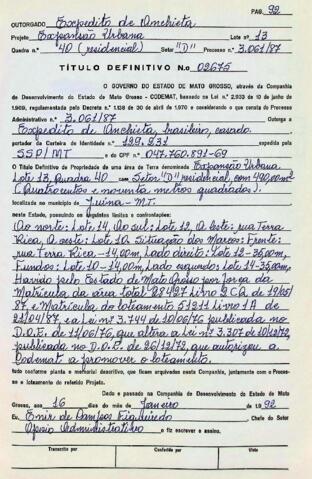 PAG. 92
OUTORGADO Expedito de Anchieta
Projeto Expansão Urbana Lote nº 13
Quadra n.º 40 (residencial) Setor "D" Processo n.º 3.061/87
TÍTULO DEFINITIVO N.o 02675
O GOVERNO DO ESTADO DE MATO GROSSO, através da Companhia
de Desenvolvimento do Estado de Mato Grosso - CODEMAT, baseado na Lei n.º 2.903 de 10 de junho de
1.969, regulamentada pelo Decreto n.º 1.138 de 30 de abril de 1.970 e considerando o que consta do Processo
Administrativo n.º 3.061/87 Outorga a
Expedito de Anchieta, brasileiro, casado.
portador da Carteira de Identidade n.º 129.931
SSP/MT e do CPF n.º 047.760.891-69
o Título Definitivo de Propriedade de uma área de Terra denominada Expansão Urbana
Lote 13, Quadra 40 com Setor "D" residencial, com 490,00m²
(Quatrocentos e noventa metros quadrados).
localizada no município de Juína - MT.
neste Estado, possuindo os seguintes limites e confrontações:
Ao norte: Lote 14, Ao sul: Lote 12, A leste: rua Terra
Rica, A oeste: Lote 10. Situação dos Marcos: Frente:
rua Terra Rica - 14,00m, Lado direito: Lote 12 - 35,00m,
Fundos: Lote 10 - 14,00m, Lado esquerdo: Lote 14 - 35,00m,
Havido pelo Estado de Mato Grosso por força da
Matrícula da área total 28427 Livro 2 CQ de
87, e Matrícula do loteamento 51211 Livro 1A de
21/04/87, e a Lei nº 3.744 de 10/06/76 publicada no
D.O.E. de 11/06/76, que altera a Lei nº 3.307 de 10/12/72,
publicada no D.O.E. de 26/12/72, que autorizou a
Codemat a promover o loteamento.
tudo conforme planta e memorial descritivo, que ficam arquivados nesta Companhia, juntamente com o Proces-
so e loteamento do referido Projeto.
Dado e passado na Companhia de Desenvolvimento do Estado de Mato
Grosso, aos 16 dias do mês de Janeiro de 1.992
Eu, Enir de Campos Figueiredo Chefe do Setor
Apoio Administrativo o fiz escrever e assino.
Transcrito por Conferido por Visto